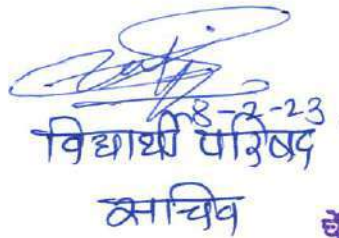 8-2-23
विद्यार्थी परिषद
सचिव